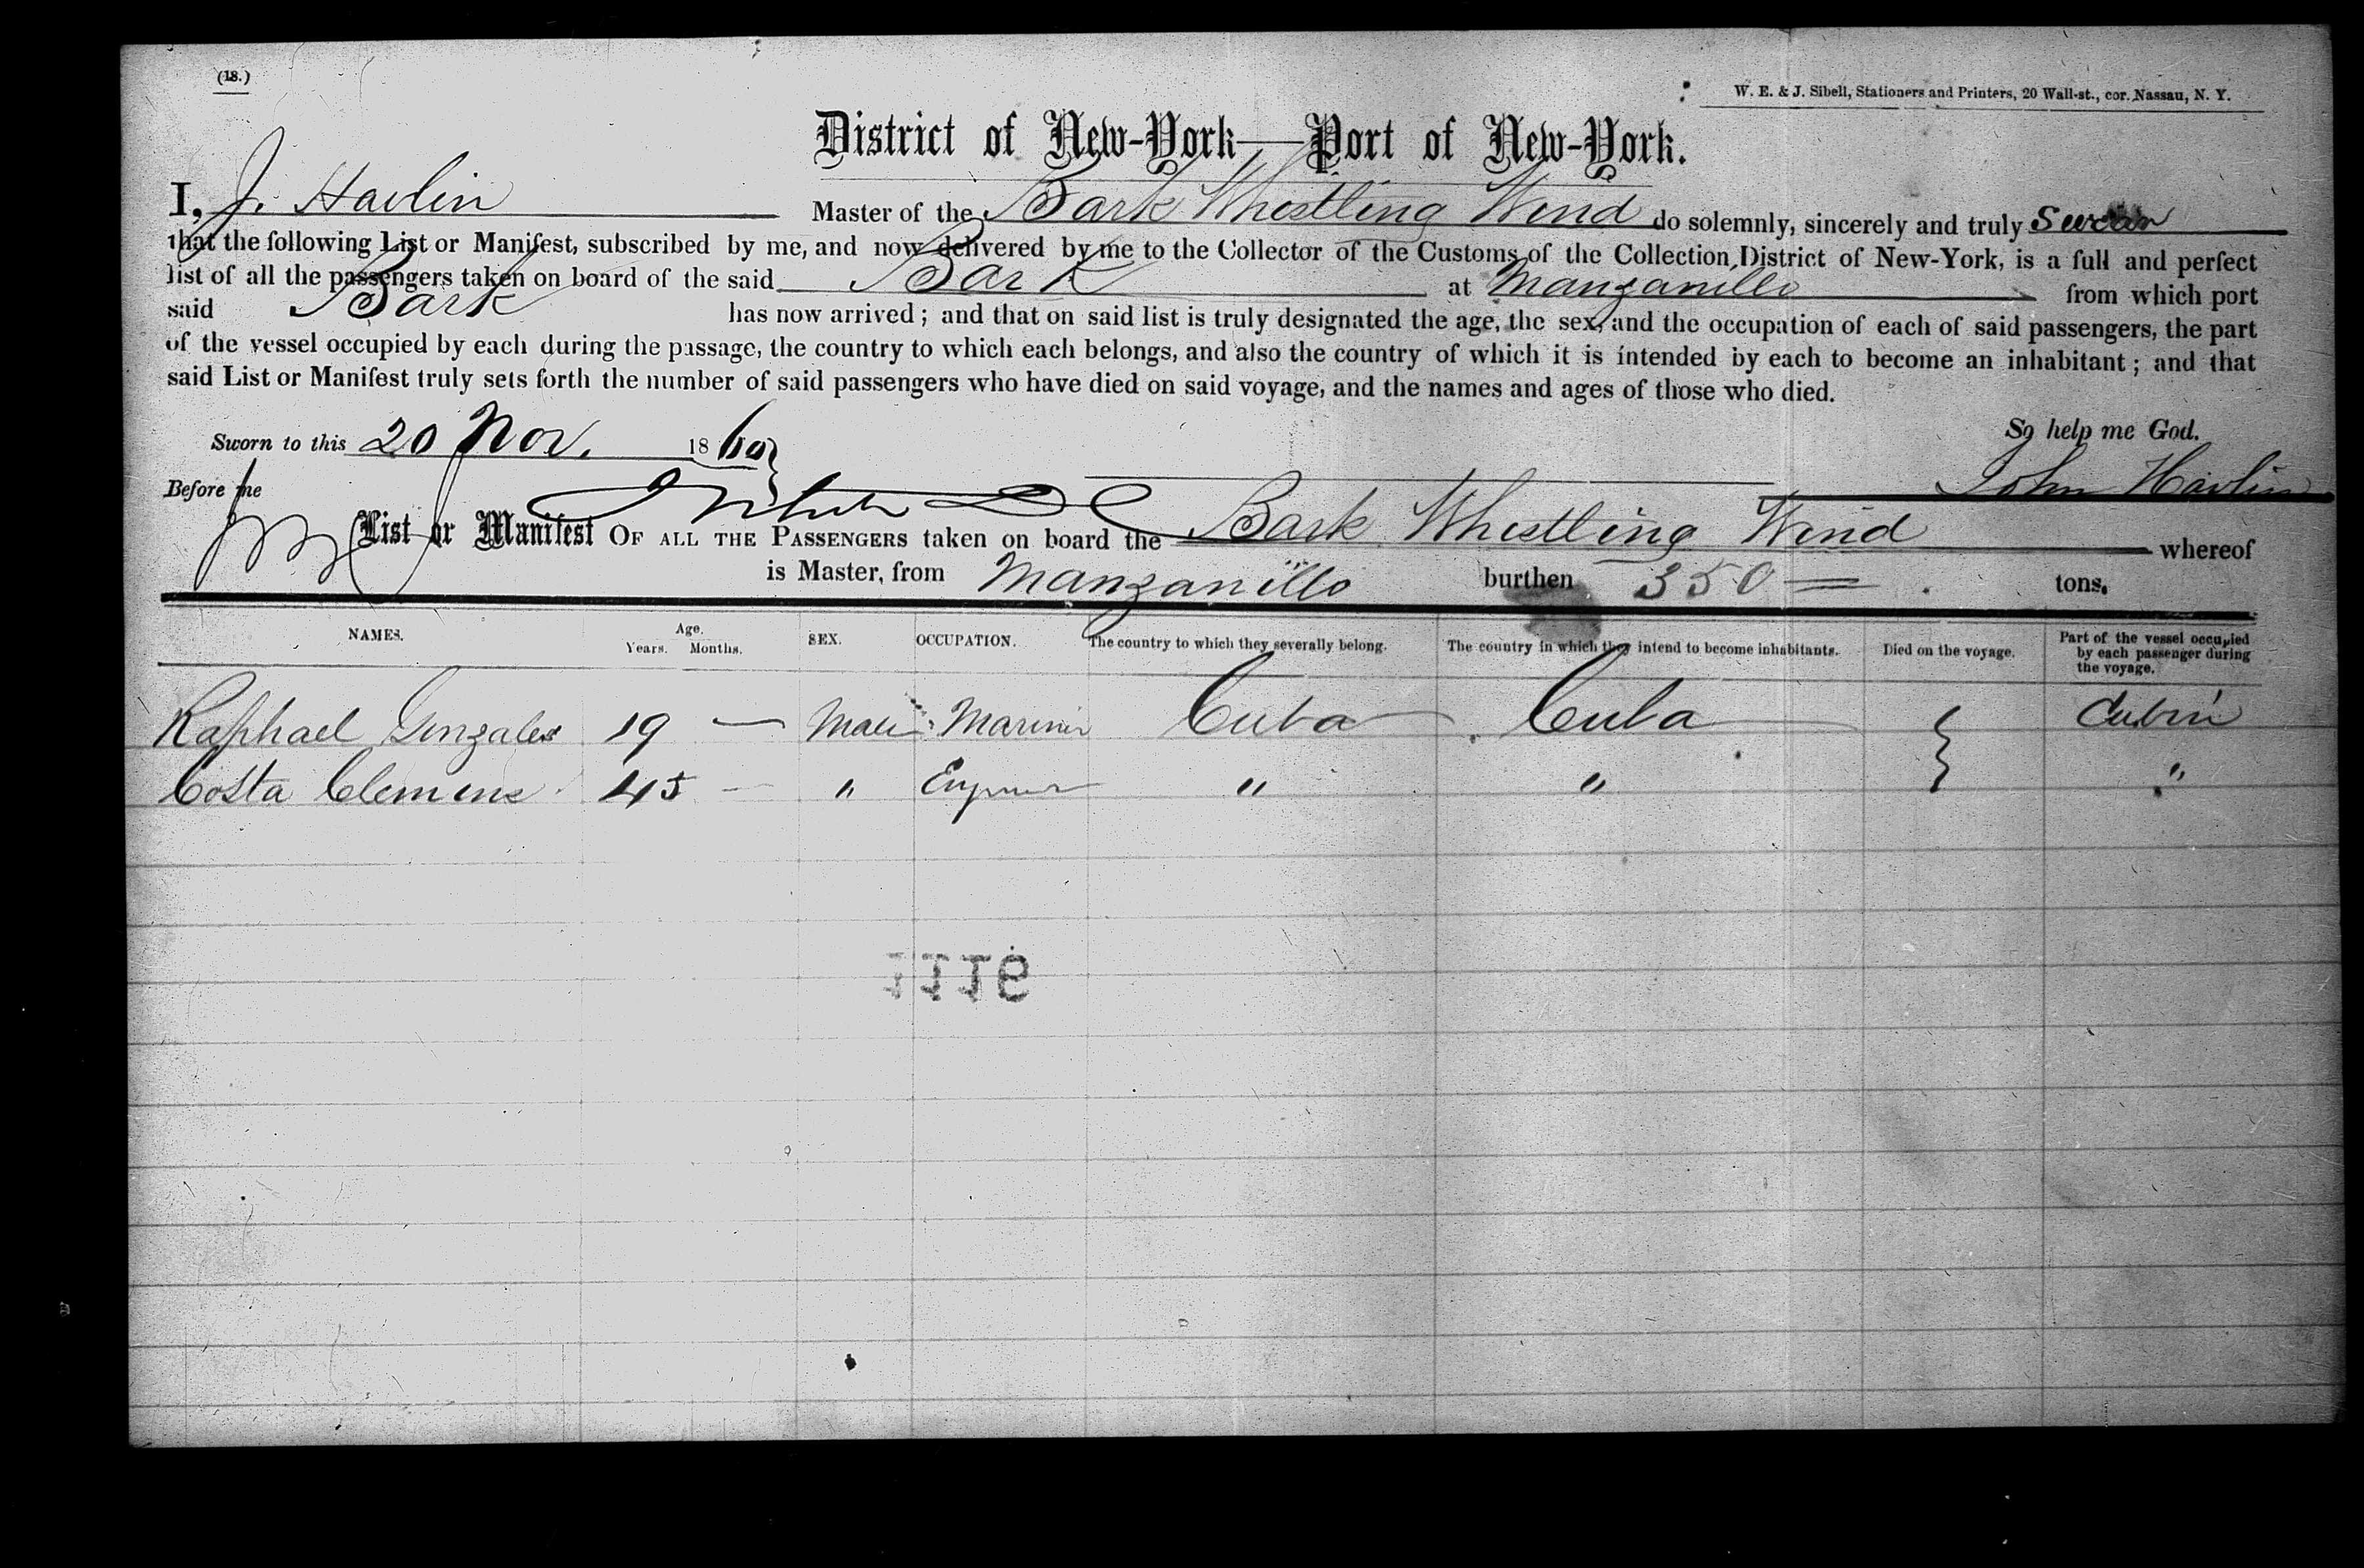 (18.)
W. E. & J. Sibell, Stationers and Printers, 20 Wall-st., cor. Nassau, N. Y.
District of New-York—Port of New-York.
I, J. Havlin Master of the Bark Whistling Wind do solemnly, sincerely and truly Swear
that the following List or Manifest, subscribed by me, and now delivered by me to the Collector of the Customs of the Collection District of New-York, is a full and perfect
list of all the passengers taken on board of the said Bark at Manzanillo from which port
said Bark has now arrived; and that on said list is truly designated the age, the sex, and the occupation of each of said passengers, the part
of the vessel occupied by each during the passage, the country to which each belongs, and also the country of which it is intended by each to become an inhabitant; and that
said List or Manifest truly sets forth the number of said passengers who have died on said voyage, and the names and ages of those who died.
So help me God.
Sworn to this 20 Nov. 1860
John Havlin
Before me
List or Manifest OF ALL THE PASSENGERS taken on board the Bark Whistling Wind whereof
is Master, from Manzanillo burthen 350 tons.
NAMES. Age. Years. Months. SEX. OCCUPATION. The country to which they severally belong. The country in which they intend to become inhabitants. Died on the voyage. Part of the vessel occupied by each passenger during the voyage.
Raphael Gonzales 19 — Male Mariner Cuba Cuba Cabin
Costa Clemens 45 — " " " "
1116